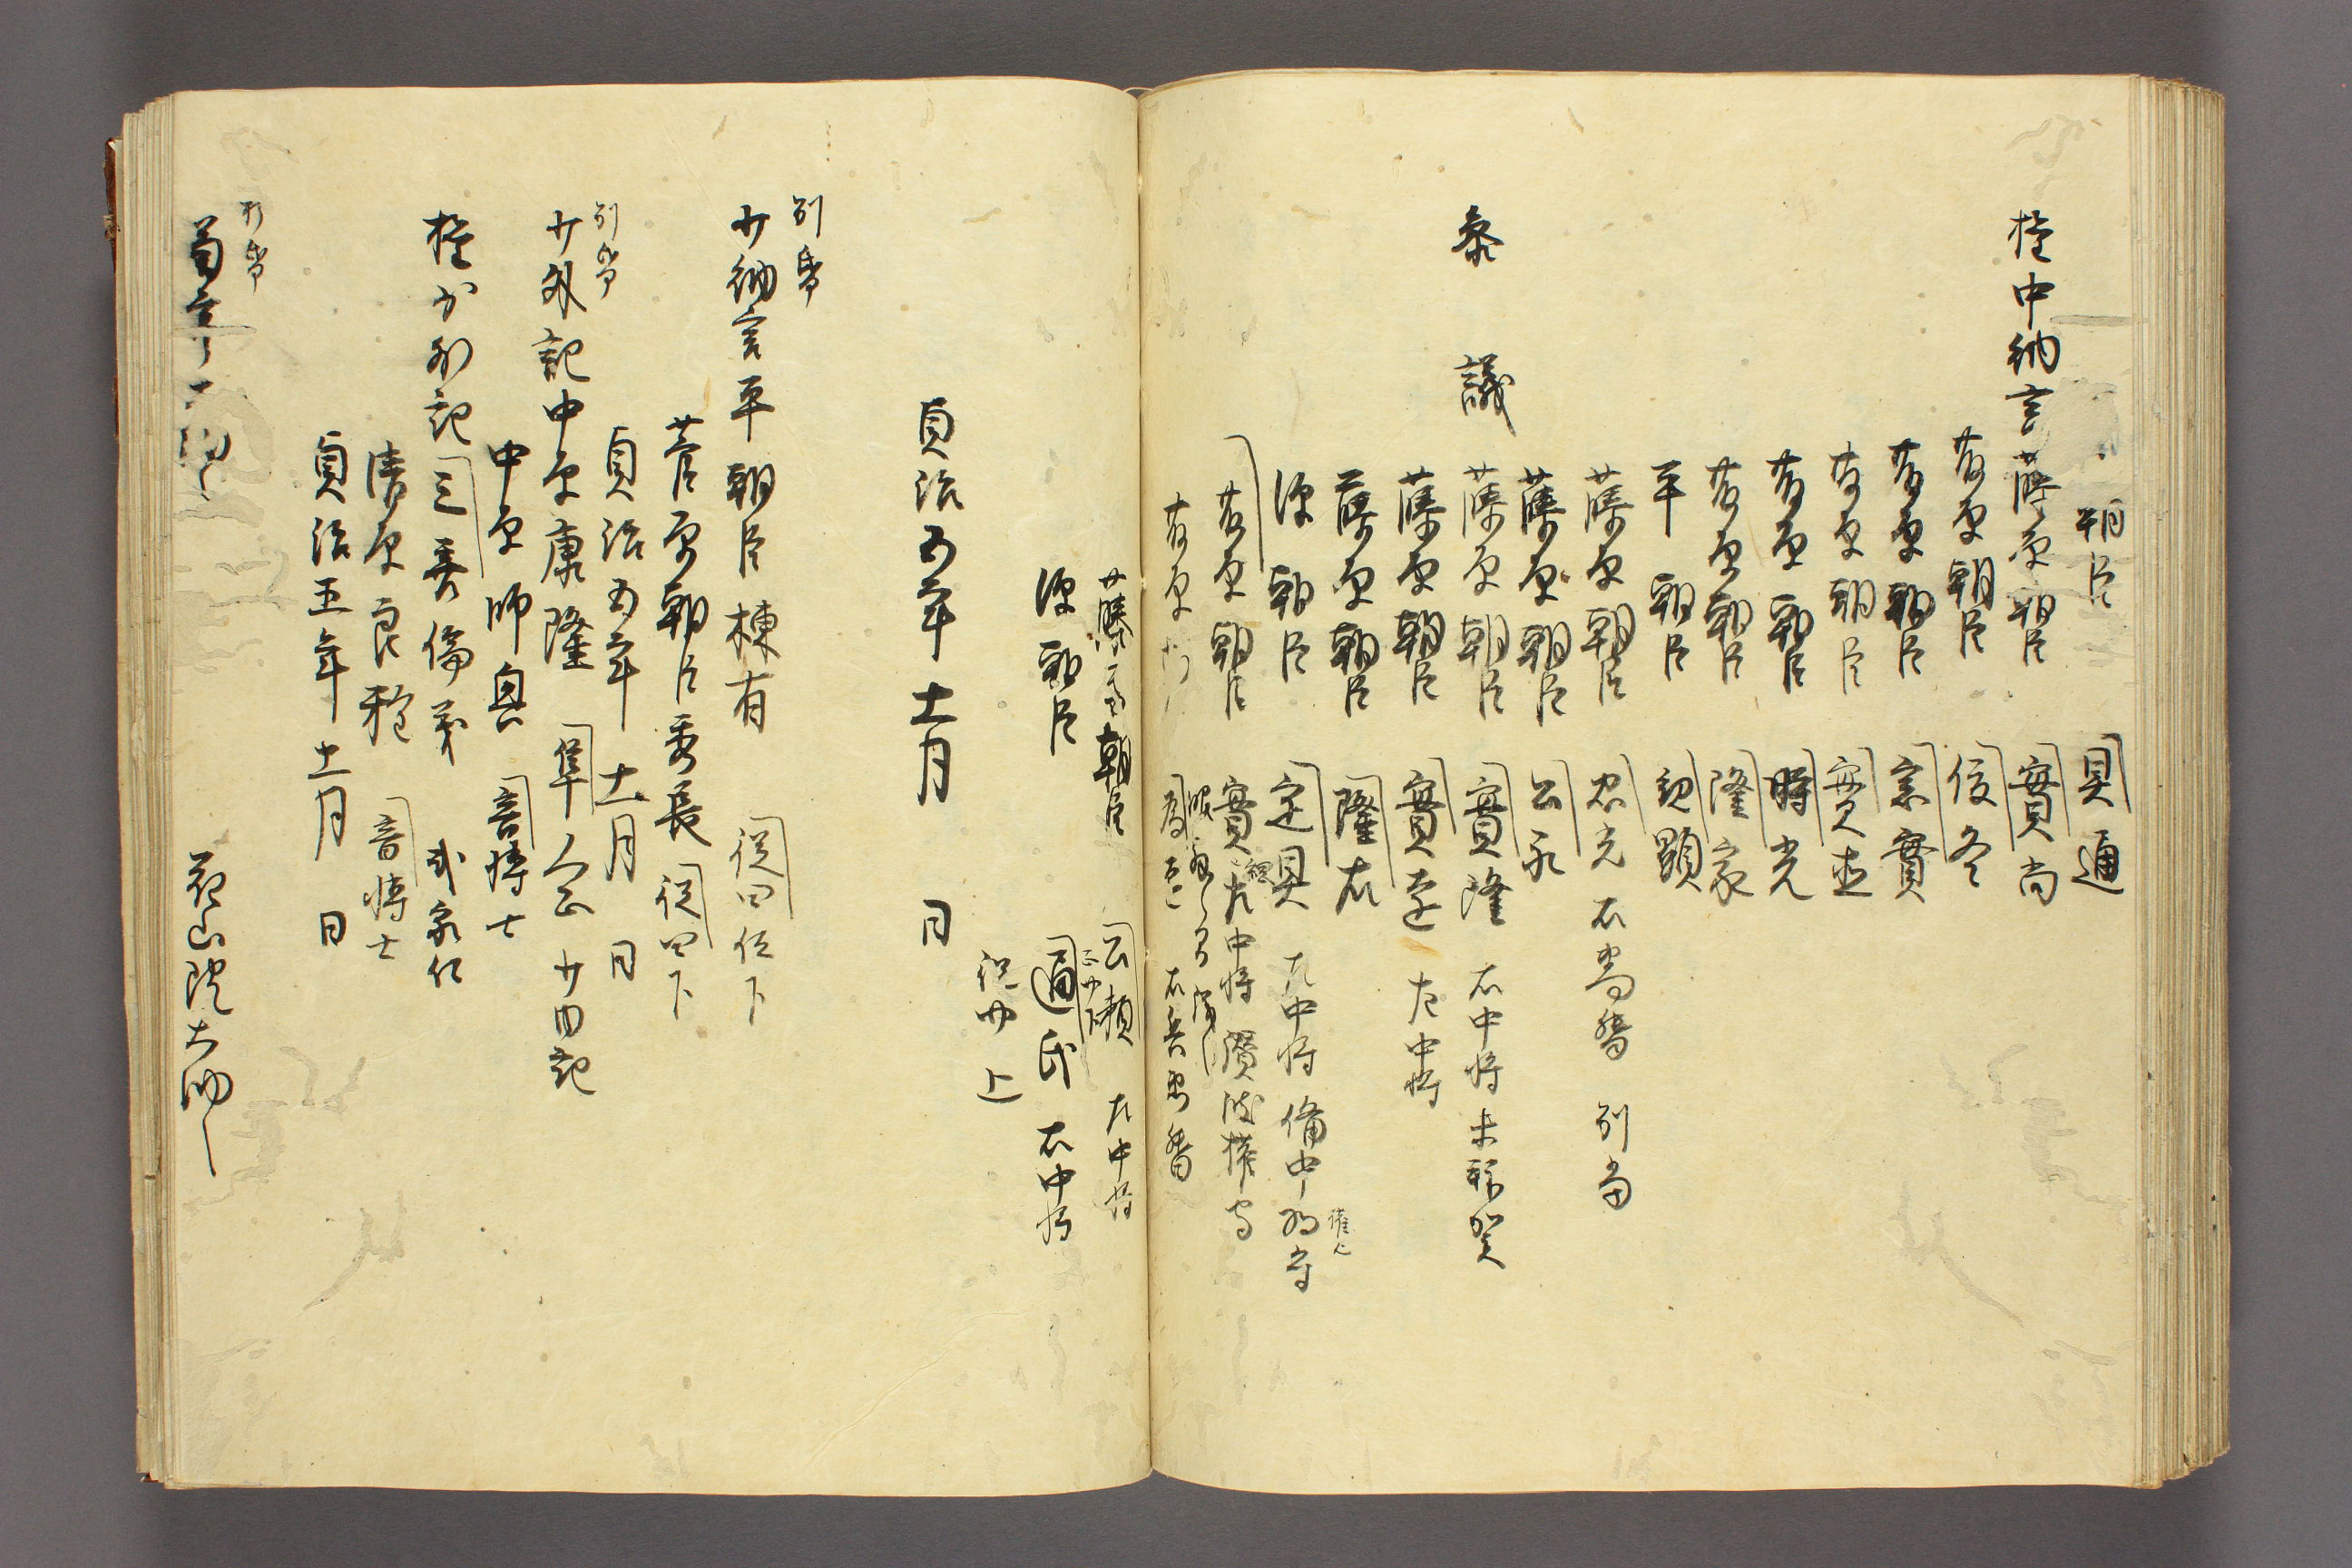 朝臣 具通
権中納言 藤原朝臣 實尚
藤原朝臣 俊冬
藤原朝臣 宗實
藤原朝臣 實
藤原朝臣 時光
藤原朝臣 隆家
平朝臣 親顕
藤原朝臣 忠光 右衛門督 別当
藤原朝臣 公永
参議 藤原朝臣 實隆 右中将 未拝賀
藤原朝臣 實遠 左中将
藤原朝臣 隆右
源朝臣 定具 左中将 備中権守
藤原朝臣 實 左中将 讃岐権守
藤原 為 右兵衛督
藤原朝臣 公頼 左中将
源朝臣 通氏 右中将
従四上
貞治五年 十二月 日
別帋
少納言平朝臣棟有 従四位下
菅原朝臣秀長 従四下
貞治五年 十二月 日
別帋
少外記中原康隆 隼人正 少内記
中原師興 音博士
権少外記三善倫義 武家仁
清原良種 音博士
貞治五年 十二月 日
別帋
花山院大納言